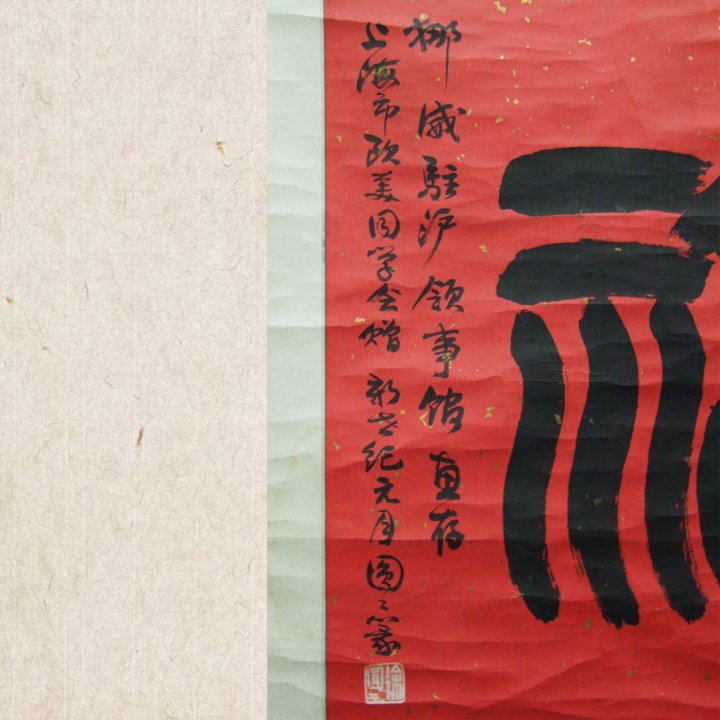 挪威駐沪领事馆惠存
上海市欧美同学会赠 新世纪元月 圆之篆